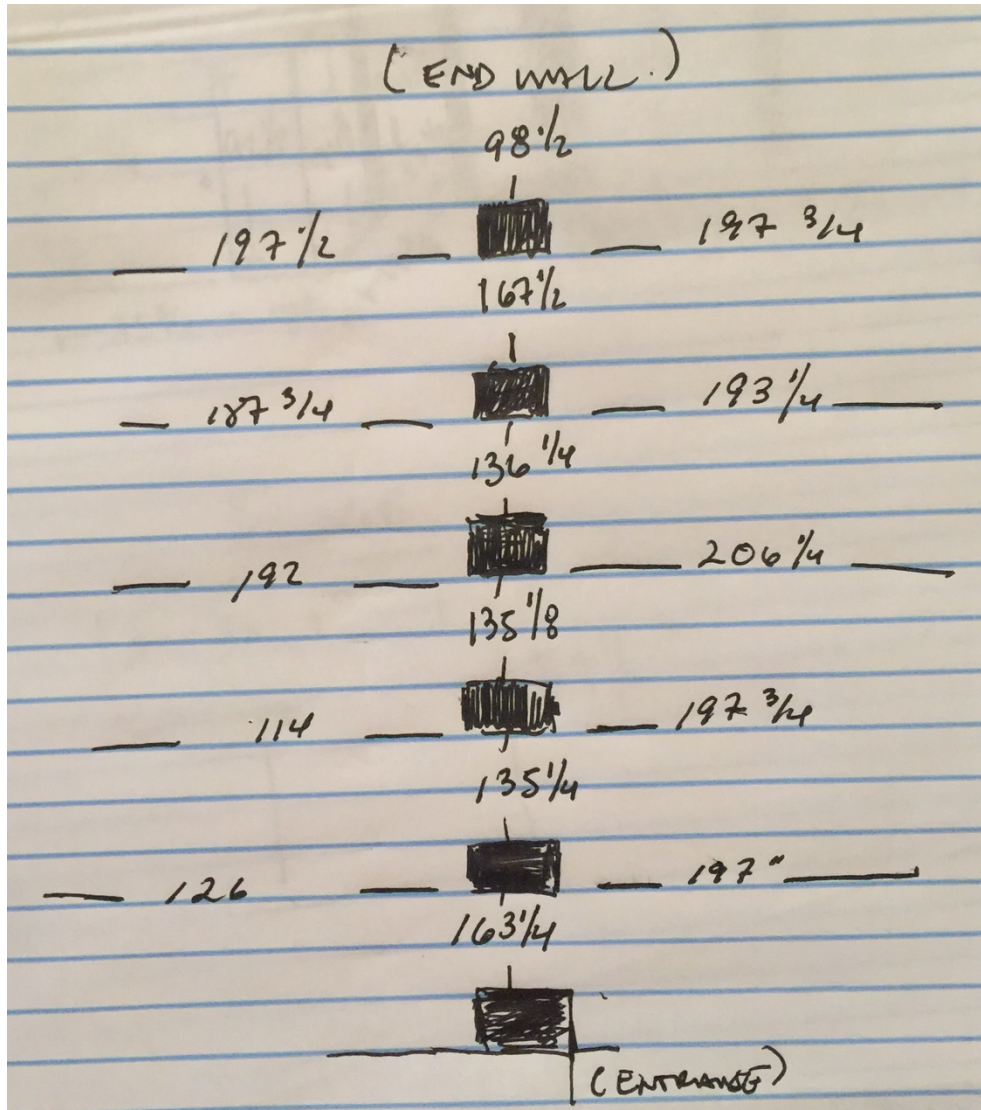 (END WALL.)
98 1/2
197 1/2 197 3/4
167 1/2
187 3/4 193 1/4
136 1/4
192 206 1/4
135 1/8
114 197 3/4
135 1/4
126 197"
163 1/4
(ENTRANCE)